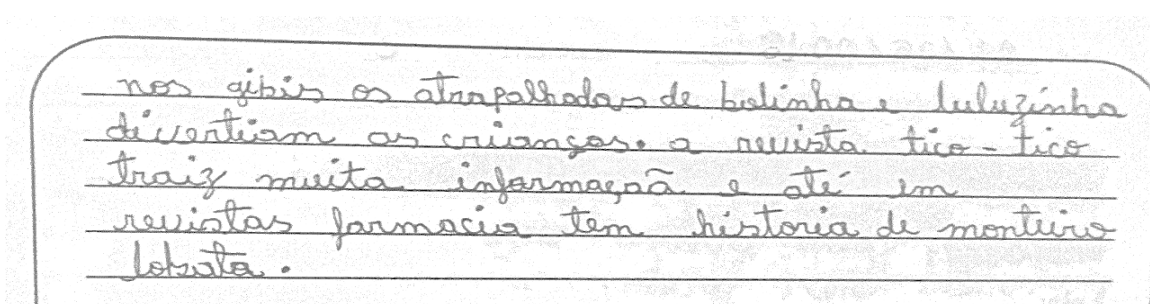 nos gibis as atrapalhadas de bolinha e luluzinha
divertiam as crianças. a revista tico-tico
traiz muita informaçaõ e até em
revistas farmacia tem historia de monteiro
lobato.